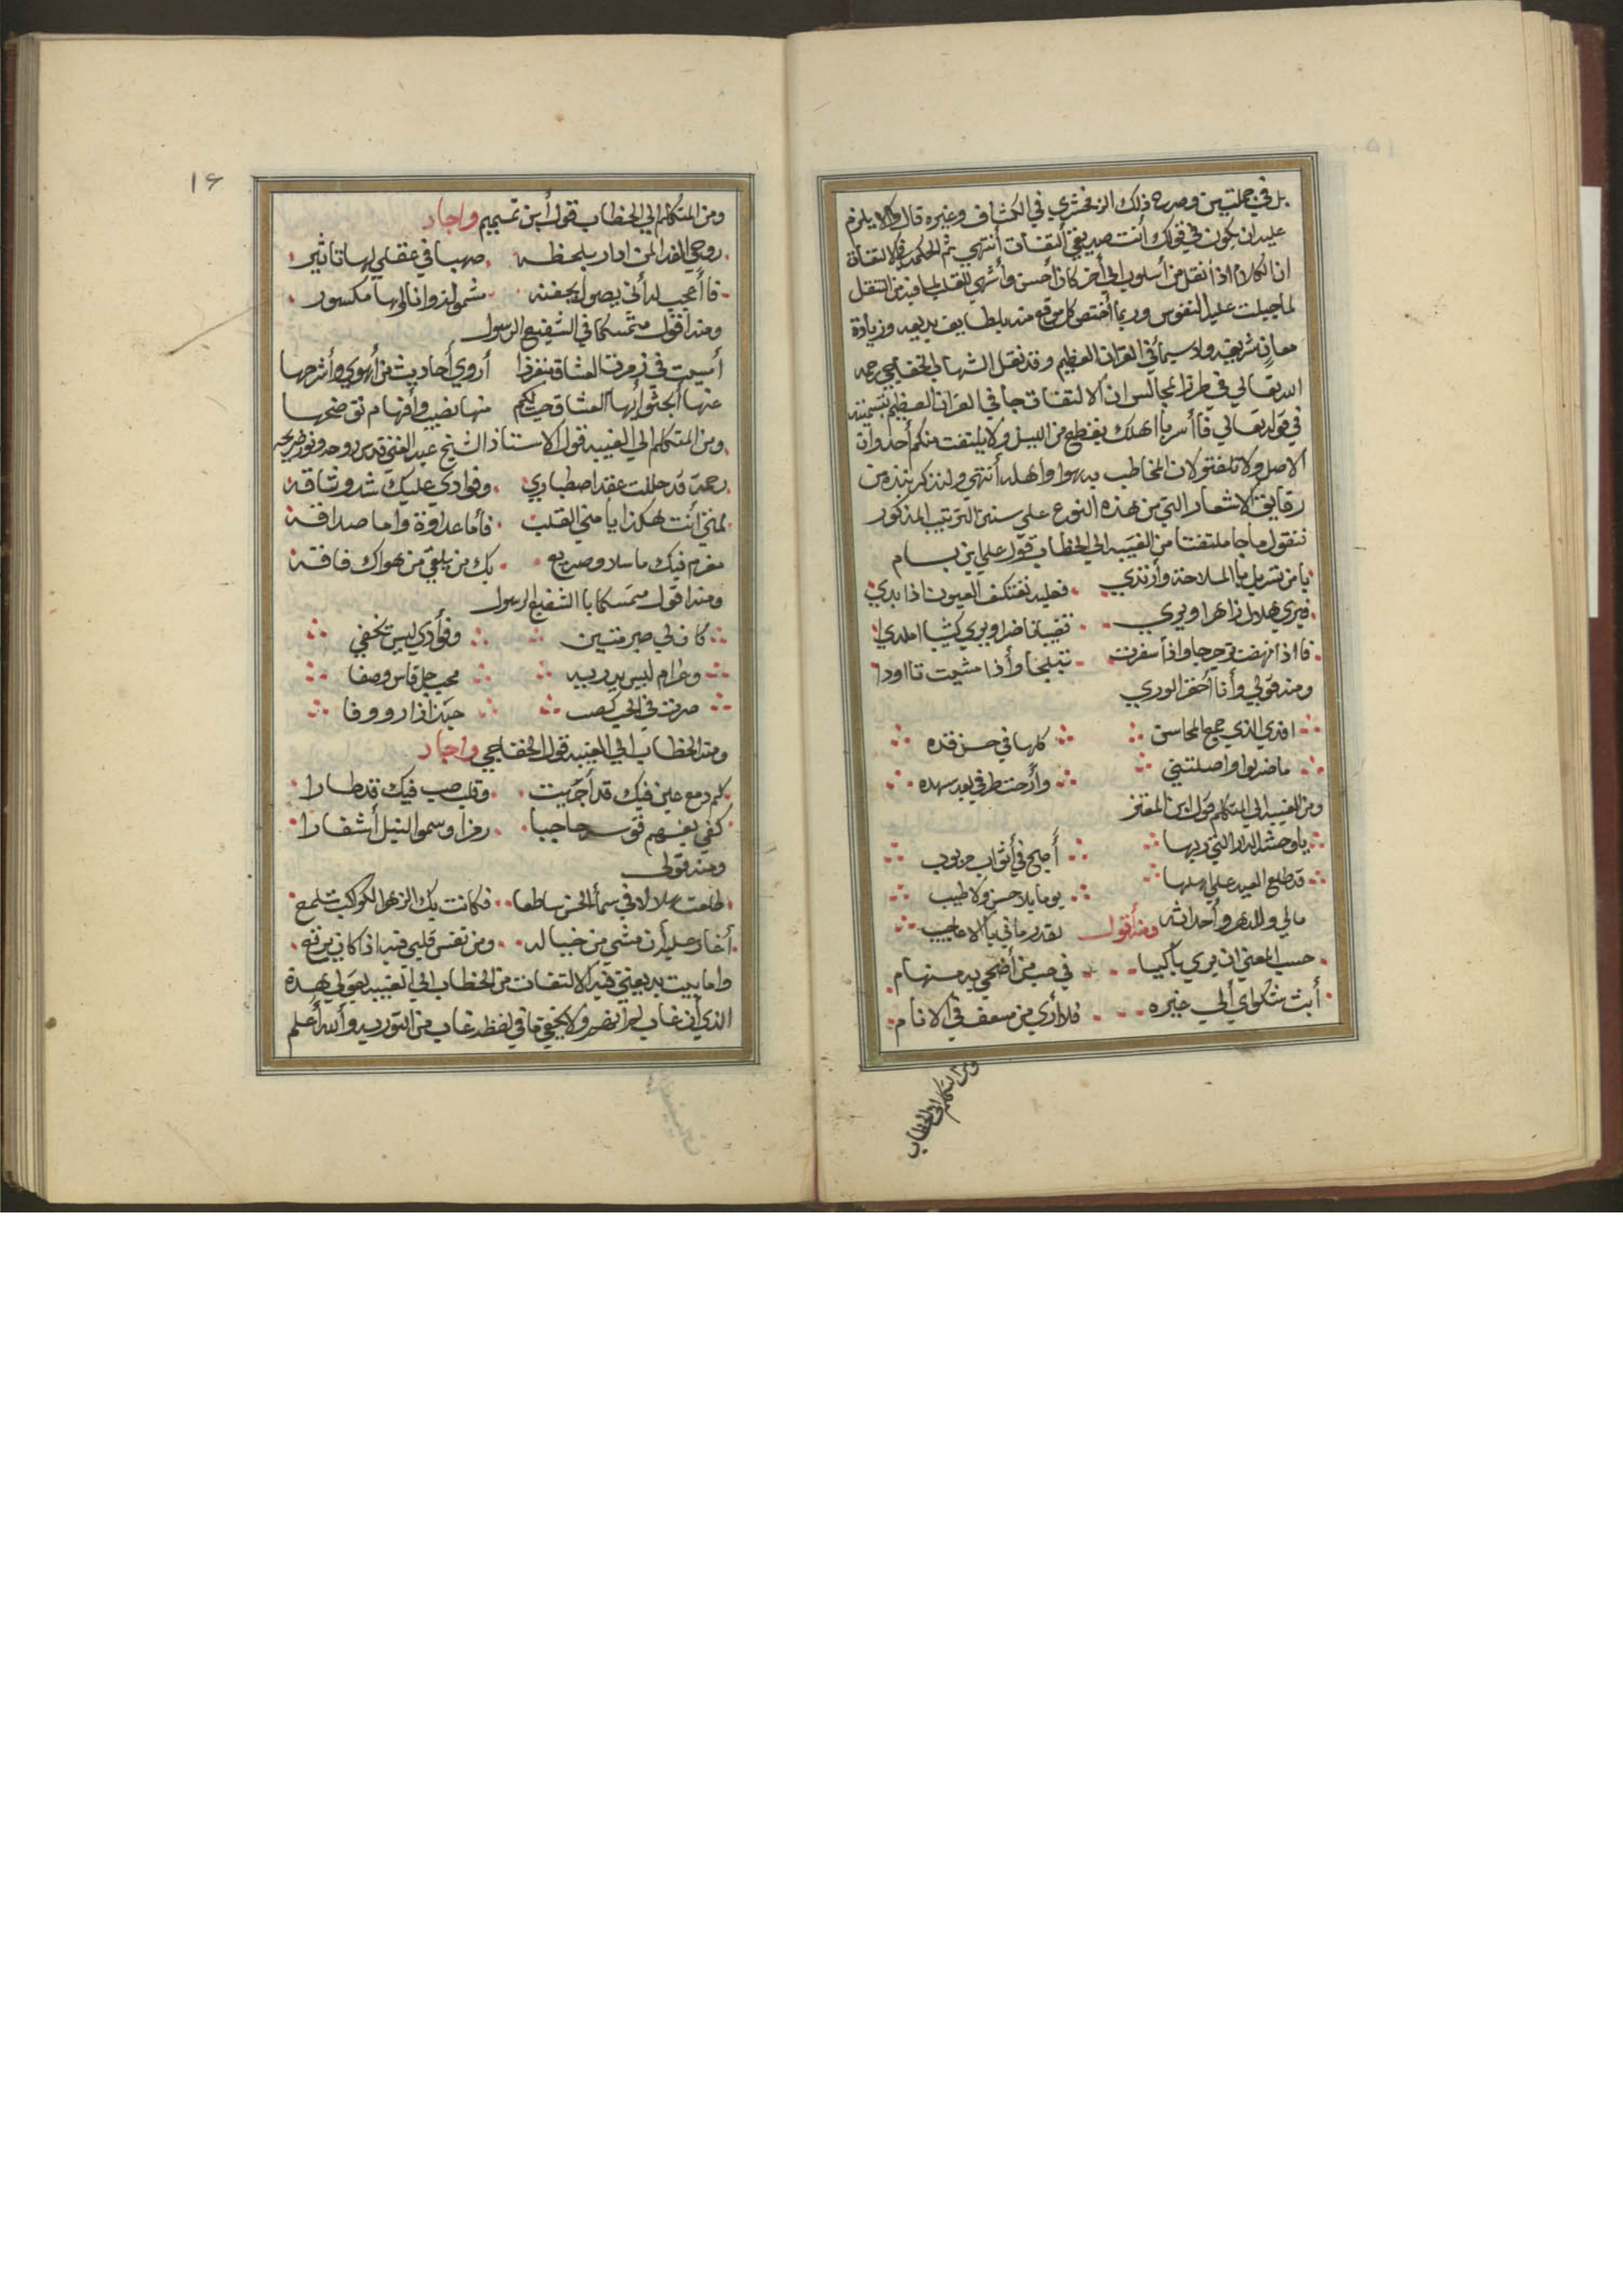 بل في جملتين وصرح ذلك الزمخشري في الكشاف وغيره قال والا يلزم
عليه ان يكون في قولك أنت صديقي التفات أنتهي ثم الحكمة في الالتفات
ان الكلام اذا أنتقل من أسلوب الي أخر كان أحسن وأشهي للقلب لما فيه من التنقل
لما جبلت عليه النفوس وربما أختص كل موقع منه بلطايف بديعه وزيادة
معان شريفه ولا سيما في القران العظيم وقد نقل الشهاب الخفاجي رحمه
الله تعالي في طراز المجالس ان الالتفات جا في القران العظيم بتسميته
في قوله تعالي فاأسر باهلك بقطع من الليل ولا يلتفت منكم أحد وان
الاصل ولا تلفتو لان المخاطب به هو واهله أنتهي ولنذكر نبذه من
رقايق الاشعار التي من هذه النوع علي سنن الترتيب المذكور
فنقول ما جا ملتفتا من الغيبه الي الخطاب قول علي ابن بسام
يا من تسربل باالملاحة وأرتدي فعليه تعتكف العيون اذا بدي
فيري هلالا زاهرا ويري قضيبا ناضرا ويري كثيبا املدي
فااذا نهضت ترجرجا واذا سفرت تبلجا وأذا مشيت تااودا
ومنه قولي وأنا أحقر الوري
افدي الذي جمع المحاسن كلها في حسن قده
ما ضر لو اوصلتني وأرحت طرفي بعد سهده
ومن الغيبه الي المتكلم قول ابن المعتز
ياوحشة الدار التي ربها أصبح في أثواب مربوب
قد طلع العيد علي اهلها يوما بلا حسن ولا طيب
مالي وللدهر وأحداثه لقد رماني باالاعاجيب ومنه أقول
حسب المعني ان يري باكيا في حب من أضحي به مستهام
أبث شكواي ألي غيره فلا أري من مسعف في الانام
ومن المتكلم الي الخطاب
١٦
ومن المتكلم الي الخطاب قول أبن تميم واجاد
روحي الفدا لمن ادار بلحظه صهبا في عقلي لها تاثير
فاأعجب له أني يصول بجفنه
ومنه اقول متمسكا في الشفيع الرسول
أمسيت في زمرة العشاق منفردا أروي أحاديث من أهوي وأشرحها
عنها أبحثو أيها العشاق حيث لكم منها نصيب وأفهام توضحها
ومن المتكلم الي الغيبه قول الاستاذ الشيخ عبد الغني قدس روحه ونور ضريحه
رحمة قد حللت عقد اصطباري وفوادي عليك شد وثاقه
لمني أنت هكذا يا مني القلب فأما عداوة واما صداقه
مغرم فيك ما سلا وصريع بك من يلقي من هواك فاقه
ومنه اقول متمسكا باالشفيع الرسول
كان لي صبر متين وفوأدي ليس تخفي
وغرام ليس يدريه محب جل قاس وصفا
صرت في الحي كصب حبذا زار ووفا
ومنه الخطاب الي الغيبه قول الخفاجي واجاد
كم دمع عين فيك قد أجريت وقلب صب فيك قد طارا
كفي بغيهم قوسه حاجبا رمزا وسموا النبل أشفارا
ومنه قولي
طلعت هلالا في سماء الحسن ساطعا فكانت بك الزهر الكواكب تلمع
أغار عليه أن مشي من خياله ومن نفس قلبي فيه اذا كان يرتع
واما بيت بديعيتي فيه الالتفات من الخطاب الي الغيبه بقولي بهذة
الذي ان غاب لم أبصر ولا يخفي ما في لفظة غاب من التوريه والله أعلم